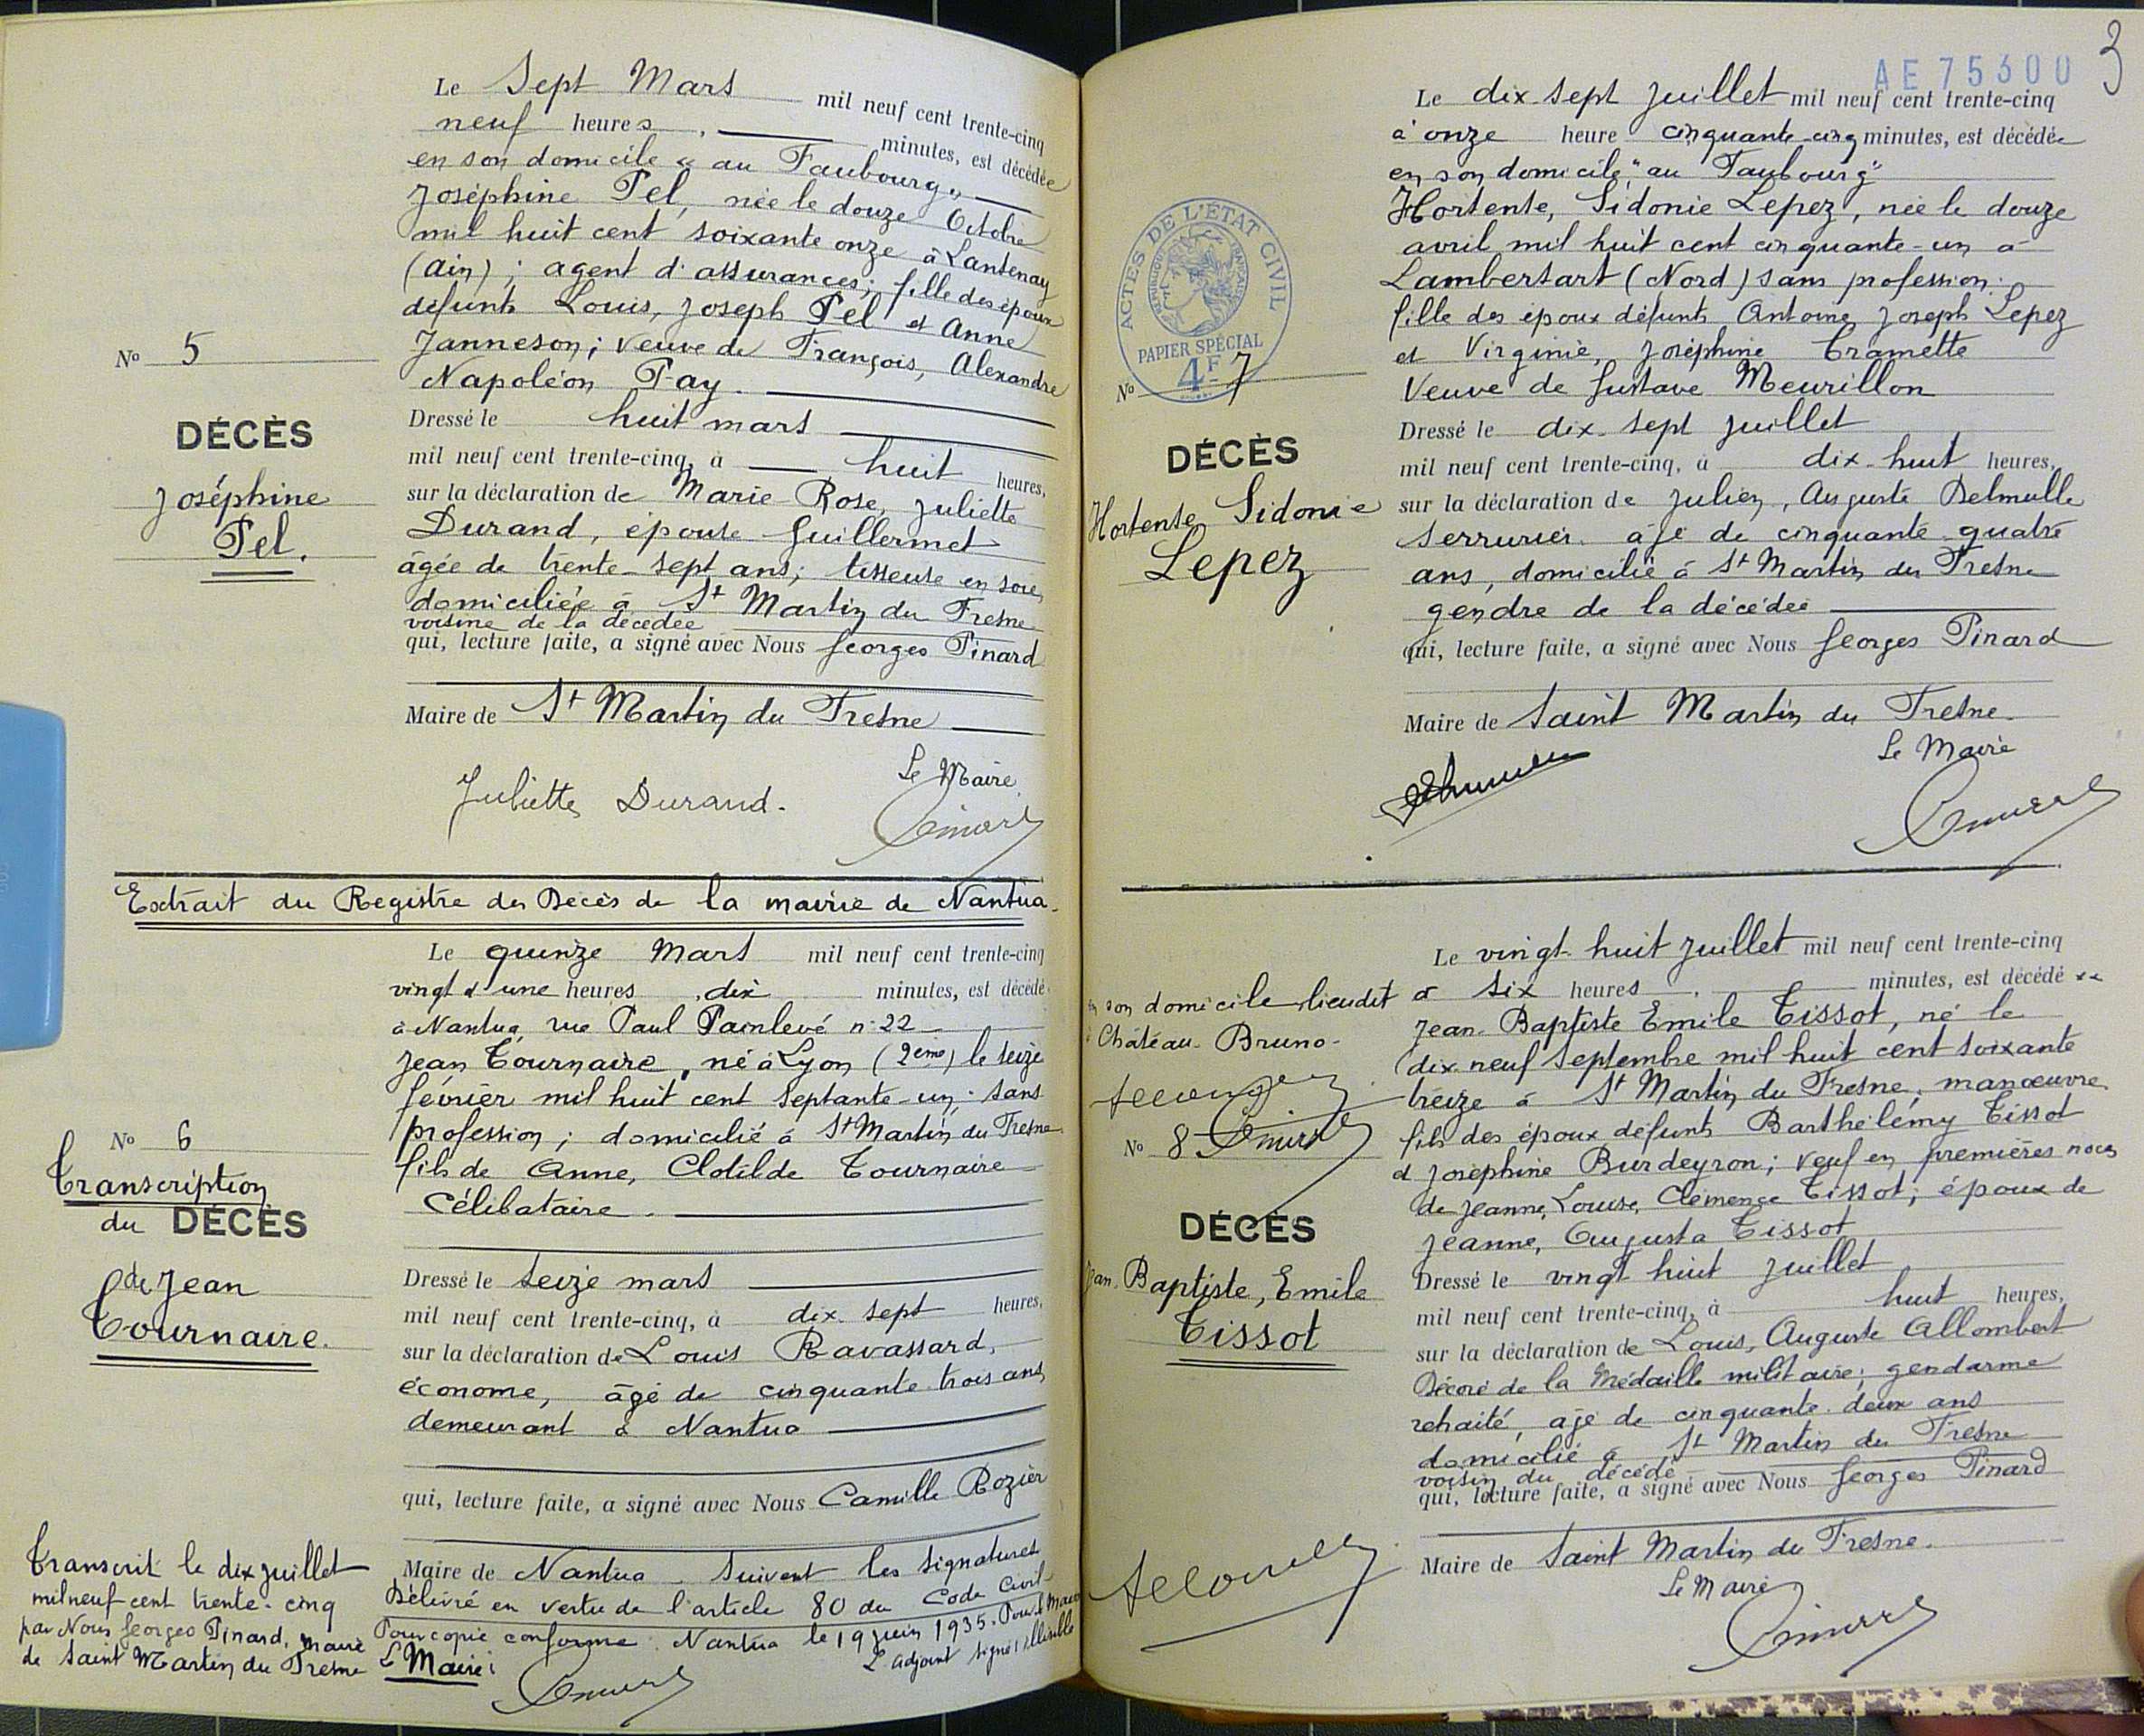 Le Sept Mars mil neuf cent trente-cinq
neuf heures, minutes, est décédée
en son domicile "au Faubourg"
Joséphine Pel, née le douze Octobre
mil huit cent soixante onze à Lantenay
(Ain); agent d'assurances; fille des époux
défunts Louis, Joseph Pel et Anne
Janneson; Veuve de François, Alexandre
Napoléon Pay.
Nº 5
DÉCÈS
Joséphine
Pel.
Dressé le huit mars
mil neuf cent trente-cinq, à huit heures,
sur la déclaration de Marie Rose, Juliette
Durand, épouse Guillermet
âgée de trente-sept ans; tisseuse en soie,
domiciliée à St Martin du Fresne
voisine de la décédée
qui, lecture faite, a signé avec Nous Georges Pinard
Maire de St Martin du Fresne
Le Maire
Juliette Durand.
Pinard
Extrait du Registre des Décès de la mairie de Nantua.
Le quinze Mars mil neuf cent trente-cinq
vingt et une heures, dix minutes, est décédé
à Nantua, rue Paul Painlevé n° 22
Jean Tournaire, né à Lyon (2eme) le seize
février mil huit cent septante-un; sans
profession; domicilié à St Martin du Fresne
fils de Anne, Clotilde Tournaire
Célibataire.
Nº 6
Transcription
du DÉCÈS
de Jean
Tournaire.
Dressé le seize mars
mil neuf cent trente-cinq, à dix-sept heures,
sur la déclaration de Louis Ravassard,
économe, âgé de cinquante-trois ans,
demeurant à Nantua
qui, lecture faite, a signé avec Nous Camille Rozier
Maire de Nantua. Suivent les signatures
Délivré en vertu de l'article 80 du Code Civil
Pour copie conforme. Nantua le 19 juin 1935. Pour le Maire
L'adjoint signé: illisible
Le Maire:
Pinard
Transcrit le dix juillet
mil neuf cent trente-cinq
par Nous Georges Pinard, maire
de Saint Martin du Fresne
AE 75300
3
Le dix-sept juillet mil neuf cent trente-cinq
à onze heure cinquante-cinq minutes, est décédée
en son domicile "au Faubourg"
Hortense, Sidonie Lepez, née le douze
avril mil huit cent cinquante-un à
Lambersart (Nord) sans profession.
fille des époux défunts Antoine Joseph Lepez
et Virginie, Joséphine Tramette
Veuve de Gustave Meurillon
ACTES DE L'ÉTAT CIVIL
RÉPUBLIQUE FRANÇAISE
PAPIER SPÉCIAL
4F
Nº 7
DÉCÈS
Hortense Sidonie
Lepez
Dressé le dix-sept juillet
mil neuf cent trente-cinq, à dix-huit heures,
sur la déclaration de Julien, Auguste Delmulle
serrurier. âgé de cinquante-quatre
ans, domicilié à St Martin du Fresne
gendre de la décédée
qui, lecture faite, a signé avec Nous Georges Pinard
Maire de Saint Martin du Fresne.
Le Maire
Pinard
Le vingt-huit juillet mil neuf cent trente-cinq
à six heures, minutes, est décédé
en son domicile lieudit
Château-Bruno-
Jean-Baptiste Emile Tissot, né le
dix-neuf septembre mil huit cent soixante
treize à St Martin du Fresne, manœuvre
fils des époux défunts Barthélémy Tissot
et Joséphine Burdeyron; veuf en premières noces
de Jeanne, Louise, Clémence Tissot; époux de
Jeanne, Augusta Tissot
Pinard
Nº 8
DÉCÈS
Jean-Baptiste, Emile
Tissot
Dressé le vingt-huit juillet
mil neuf cent trente-cinq, à huit heures,
sur la déclaration de Louis, Auguste Allombert
Décoré de la Médaille militaire; gendarme
retraité, âgé de cinquante-deux ans
domicilié à St Martin du Fresne
voisin du décédé
qui, lecture faite, a signé avec Nous Georges Pinard
Maire de Saint Martin du Fresne.
Le Maire
Pinard